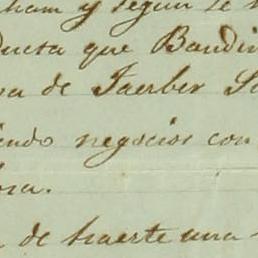 ham y segun se
ducta que Baudin
va de Faerber S
iendo negocios con
ora.
de traerte una